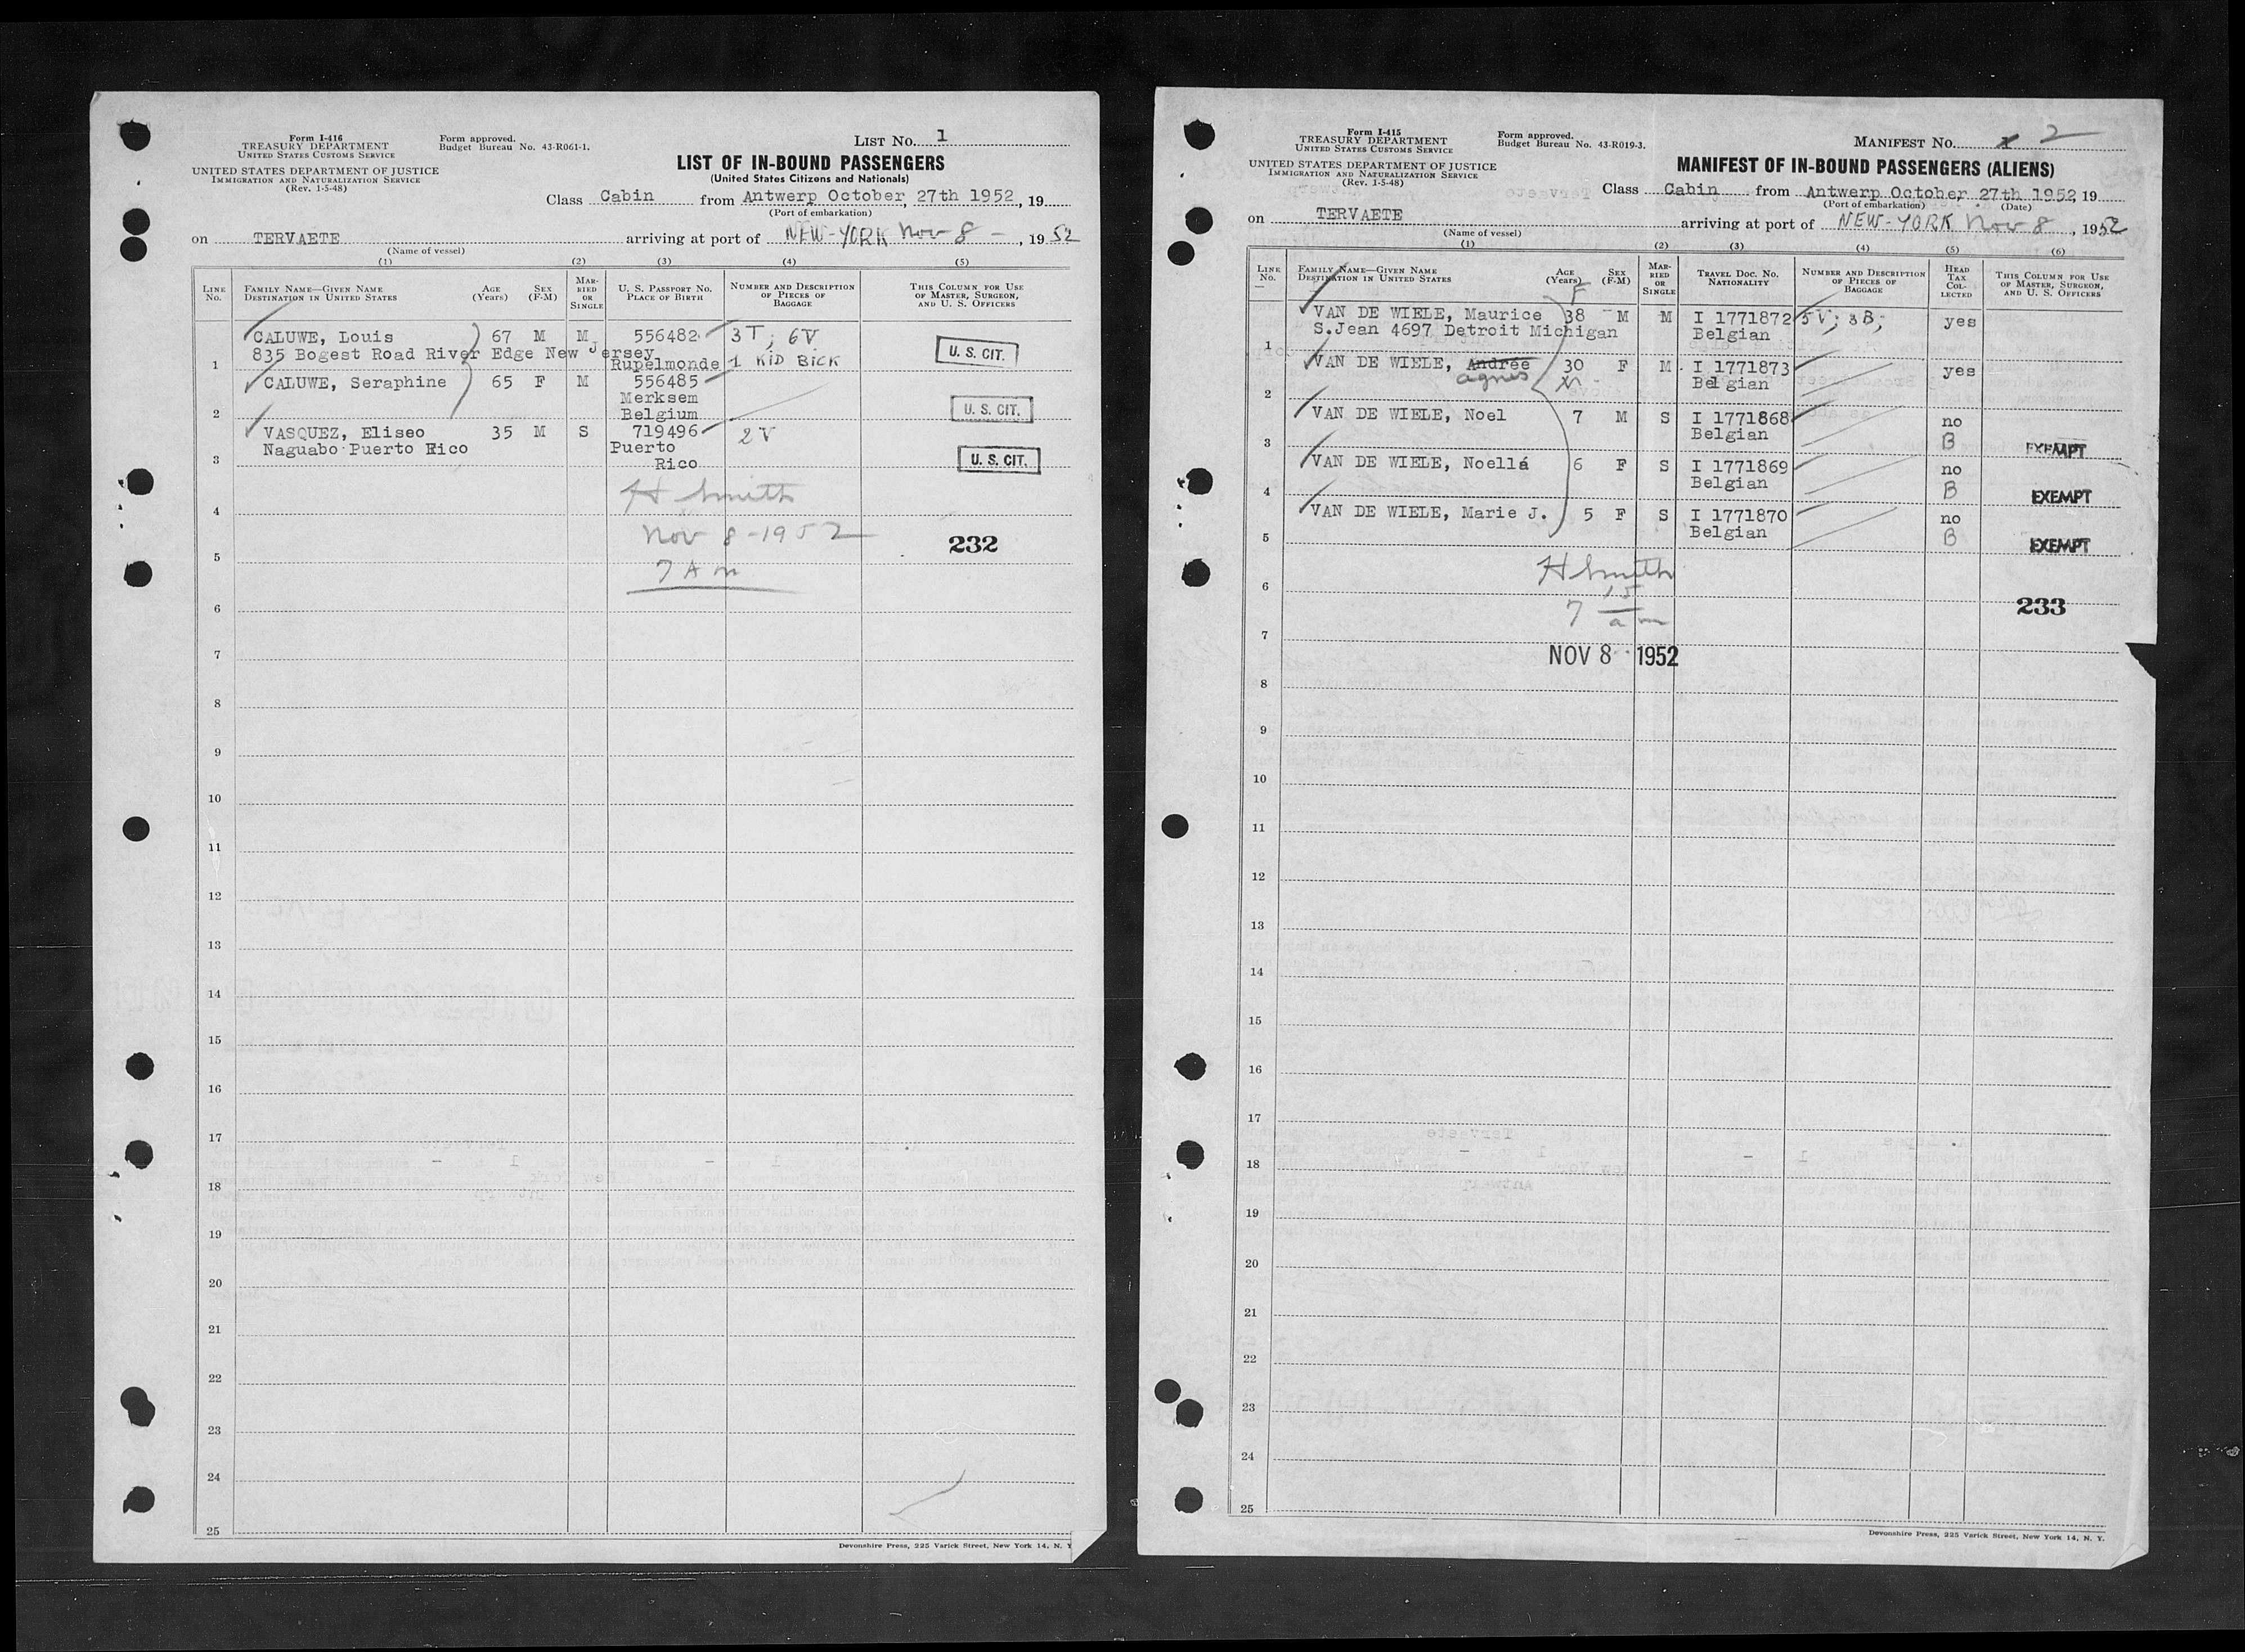 Form I-416
TREASURY DEPARTMENT
UNITED STATES CUSTOMS SERVICE
UNITED STATES DEPARTMENT OF JUSTICE
IMMIGRATION AND NATURALIZATION SERVICE
(Rev. 1-5-48)
Form approved.
Budget Bureau No. 43-R061-1.
LIST NO. 1
LIST OF IN-BOUND PASSENGERS
(United States Citizens and Nationals)
Class Cabin from Antwerp October, 27th 1952, 19
(Port of embarkation)
on TERVAETE arriving at port of NEW-YORK Nov 8 -, 1952
(Name of vessel)
(1) (2) (3) (4) (5)
LINE NO.
FAMILY NAME—GIVEN NAME
DESTINATION IN UNITED STATES
AGE (Years)
SEX (F-M)
MARRIED OR SINGLE
U. S. PASSPORT NO.
PLACE OF BIRTH
NUMBER AND DESCRIPTION OF PIECES OF BAGGAGE
THIS COLUMN FOR USE OF MASTER, SURGEON, AND U. S. OFFICERS
CALUWE, Louis 67 M M 556482 3T; 6V
835 Bogest Road River Edge New Jersey
1 Rupelmonde 1 KID BICK U. S. CIT.
CALUWE, Seraphine 65 F M 556485
Merksem
2 Belgium U. S. CIT.
VASQUEZ, Eliseo 35 M S 719496 2V
Naguabo Puerto Rico Puerto
3 Rico U. S. CIT.
H Smith
4
Nov 8-1952
5 232
7 Am
6
7
8
9
10
11
12
13
14
15
16
17
18
19
20
21
22
23
24
25
Devonshire Press, 225 Varick Street, New York 14, N. Y
Form I-415
TREASURY DEPARTMENT
UNITED STATES CUSTOMS SERVICE
UNITED STATES DEPARTMENT OF JUSTICE
IMMIGRATION AND NATURALIZATION SERVICE
(Rev. 1-5-48)
Form approved.
Budget Bureau No. 43-R019-3.
MANIFEST NO. 2
MANIFEST OF IN-BOUND PASSENGERS (ALIENS)
Class Cabin from Antwerp October, 27th 1952, 19
(Port of embarkation) (Date)
on TERVAETE arriving at port of NEW-YORK Nov 8, 1952
(Name of vessel)
(1) (2) (3) (4) (5) (6)
LINE NO.
FAMILY NAME—GIVEN NAME
DESTINATION IN UNITED STATES
AGE (Years)
SEX (F-M)
MARRIED OR SINGLE
TRAVEL DOC. NO.
NATIONALITY
NUMBER AND DESCRIPTION OF PIECES OF BAGGAGE
HEAD TAX COLLECTED
THIS COLUMN FOR USE OF MASTER, SURGEON, AND U. S. OFFICERS
F
VAN DE WIELE, Maurice 38 M M I 1771872 5V; 3B; yes
S.Jean 4697 Detroit Michigan Belgian
1
VAN DE WIELE, Andrée 30 F M I 1771873 yes
agnes Belgian
2
VAN DE WIELE, Noel 7 M S I 1771868 no
Belgian
3 B EXEMPT
VAN DE WIELE, Noellá 6 F S I 1771869 no
Belgian
4 B EXEMPT
VAN DE WIELE, Marie J. 5 F S I 1771870 no
Belgian
5 B EXEMPT
H Smith
6 233
7 15 am
7
NOV 8 1952
8
9
10
11
12
13
14
15
16
17
18
19
20
21
22
23
24
25
Devonshire Press, 225 Varick Street, New York 14, N. Y.